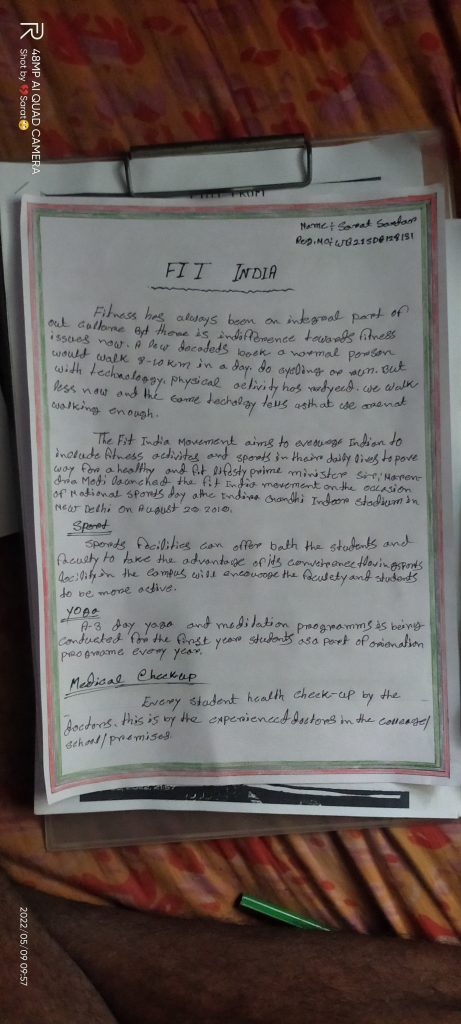 Name:- Sarat Sardar
FIT INDIA
Fitness has always been an integral part of
out culture but there is indifference towards fitness
issues now. A few decades back a normal person
would walk 8-10 km in a day, do cycling or run. But
with technology, physical activity has reduced. we walk
less now and the same techology tells us that we are not
walking enough.
The Fit India Movement aims to Indian to
include fitness activites and sports in their daily lives to pave
way for a healthy and fit prime minister Naren-
dra Modi launched the fit India movement on the occasion
of National sports day at the Indira Gandhi Indoor stadium in
New Delhi on August 29
Sport
sports facilities can offer bath the students and
faculty to take the advantage of its Having sports
facility in the campus will the faculety and students
to be more active.
YOGA
A-3 day yoga and meditation programms is being
conducted for the first year students as a part of
programe every year.
Medical Checkup
Every student health check-up by the
doctors. this is by the experienced doctors in the
school/premises.
48MP AI QUAD CAMERA
Shot by Sarat
2022/05/09 09:57